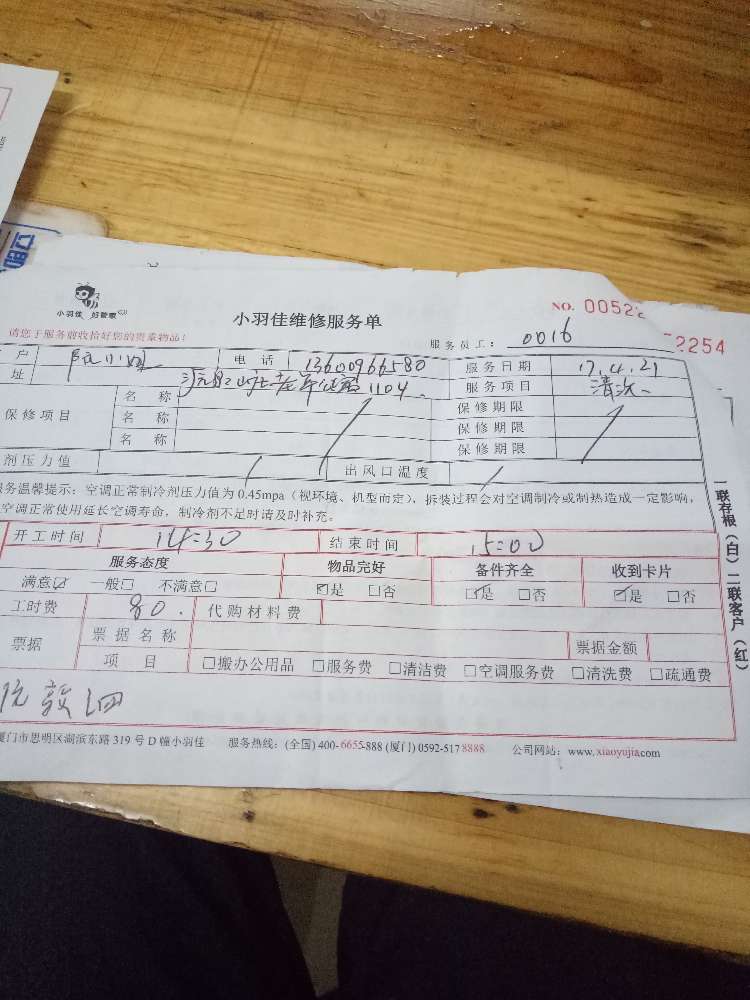 小羽佳 好管家
小羽佳维修服务单
NO. 0052
2254
请您于服务前收拾好您的贵重物品！
服务员工： 0016
户 阮小姐 电话 13600966580 服务日期 17.4.21
址 1104 服务项目 清洗
保修项目 名称 保修期限
名称 保修期限
名称 保修期限
剂压力值 出风口温度
服务温馨提示：空调正常制冷剂压力值为 0.45mpa（视环境、机型而定），拆装过程会对空调制冷或制热造成一定影响，
空调正常使用延长空调寿命，制冷剂不足时请及时补充。
开工时间 14:30 结束时间 15:00
服务态度 物品完好 备件齐全 收到卡片
满意☑ 一般□ 不满意□ ☑是 □否 ☑是 □否 ☑是 □否
工时费 80. 代购材料费
票据 票据名称 票据金额
项目 □搬办公用品 □服务费 □清洁费 □空调服务费 □清洗费 □疏通费
厦门市思明区湖滨东路 319 号 D 幢小羽佳 服务热线：(全国) 400-6655-888 (厦门) 0592-517 8888 公司网站：www.xiaoyujia.com
一联存根（白）二联客户（红）
立即